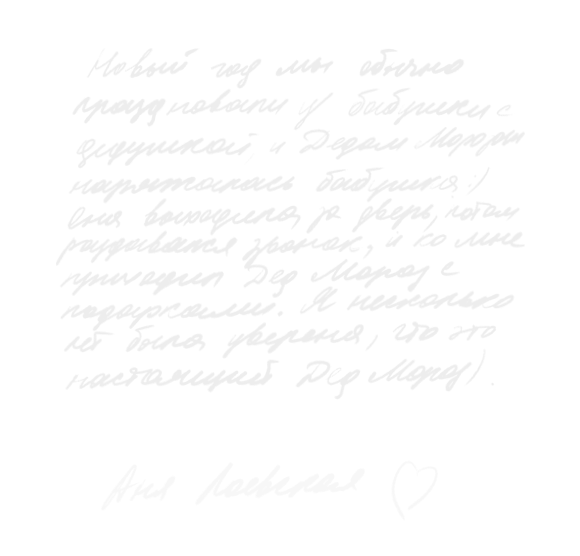 Новый год мы обычно
праздновали у бабушки с
дедушкой, и Дедом Морозом
наряжалась бабушка :)
Она выходила за дверь, потом
раздавался звонок, и ко мне
приходил Дед Мороз с
подарками. Я несколько
лет была уверена, что это
настоящий Дед Мороз).
Аня